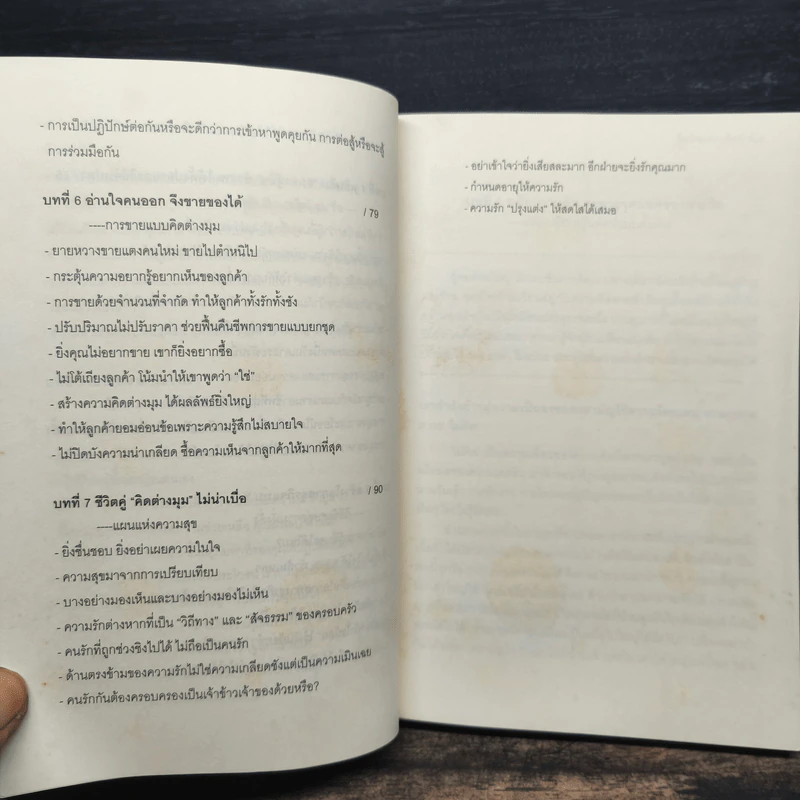 - การเป็นปฏิปักษ์ต่อกันหรือจะดีกว่าการเข้าหาพูดคุยกัน การต่อสู้หรือจะสู้
การร่วมมือกัน
บทที่ 6 อ่านใจคนออก จึงขายของได้ / 79
----การขายแบบคิดต่างมุม
- ยายหวางขายแตงคนใหม่ ขายไปตำหนิไป
- กระตุ้นความอยากรู้อยากเห็นของลูกค้า
- การขายด้วยจำนวนที่จำกัด ทำให้ลูกค้าทั้งรักทั้งชัง
- ปรับปริมาณไม่ปรับราคา ช่วยฟื้นคืนชีพการขายแบบยกชุด
- ยิ่งคุณไม่อยากขาย เขาก็ยิ่งอยากซื้อ
- ไม่โต้เถียงลูกค้า โน้มนำให้เขาพูดว่า “ใช่”
- สร้างความคิดต่างมุม ได้ผลลัพธ์ยิ่งใหญ่
- ทำให้ลูกค้ายอมอ่อนข้อเพราะความรู้สึกไม่สบายใจ
- ไม่ปิดบังความน่าเกลียด ซื้อความเห็นจากลูกค้าให้มากที่สุด
บทที่ 7 ชีวิตคู่ “คิดต่างมุม” ไม่น่าเบื่อ / 90
----แผนแห่งความสุข
- ยิ่งชื่นชอบ ยิ่งอย่าเผยความในใจ
- ความสุขมาจากการเปรียบเทียบ
- บางอย่างมองเห็นและบางอย่างมองไม่เห็น
- ความรักต่างหากที่เป็น “วิถีทาง” และ “สัจธรรม” ของครอบครัว
- คนรักที่ถูกช่วงชิงไปได้ ไม่ถือเป็นคนรัก
- ด้านตรงข้ามของความรักไม่ใช่ความเกลียดชังแต่เป็นความเมินเฉย
- คนรักกันต้องครอบครองเป็นเจ้าข้าวเจ้าของด้วยหรือ?
- อย่าเข้าใจว่ายิ่งเสียสละมาก อีกฝ่ายจะยิ่งรักคุณมาก
- กำหนดอายุให้ความรัก
- ความรัก “ปรุงแต่ง” ให้สดใสได้เสมอ